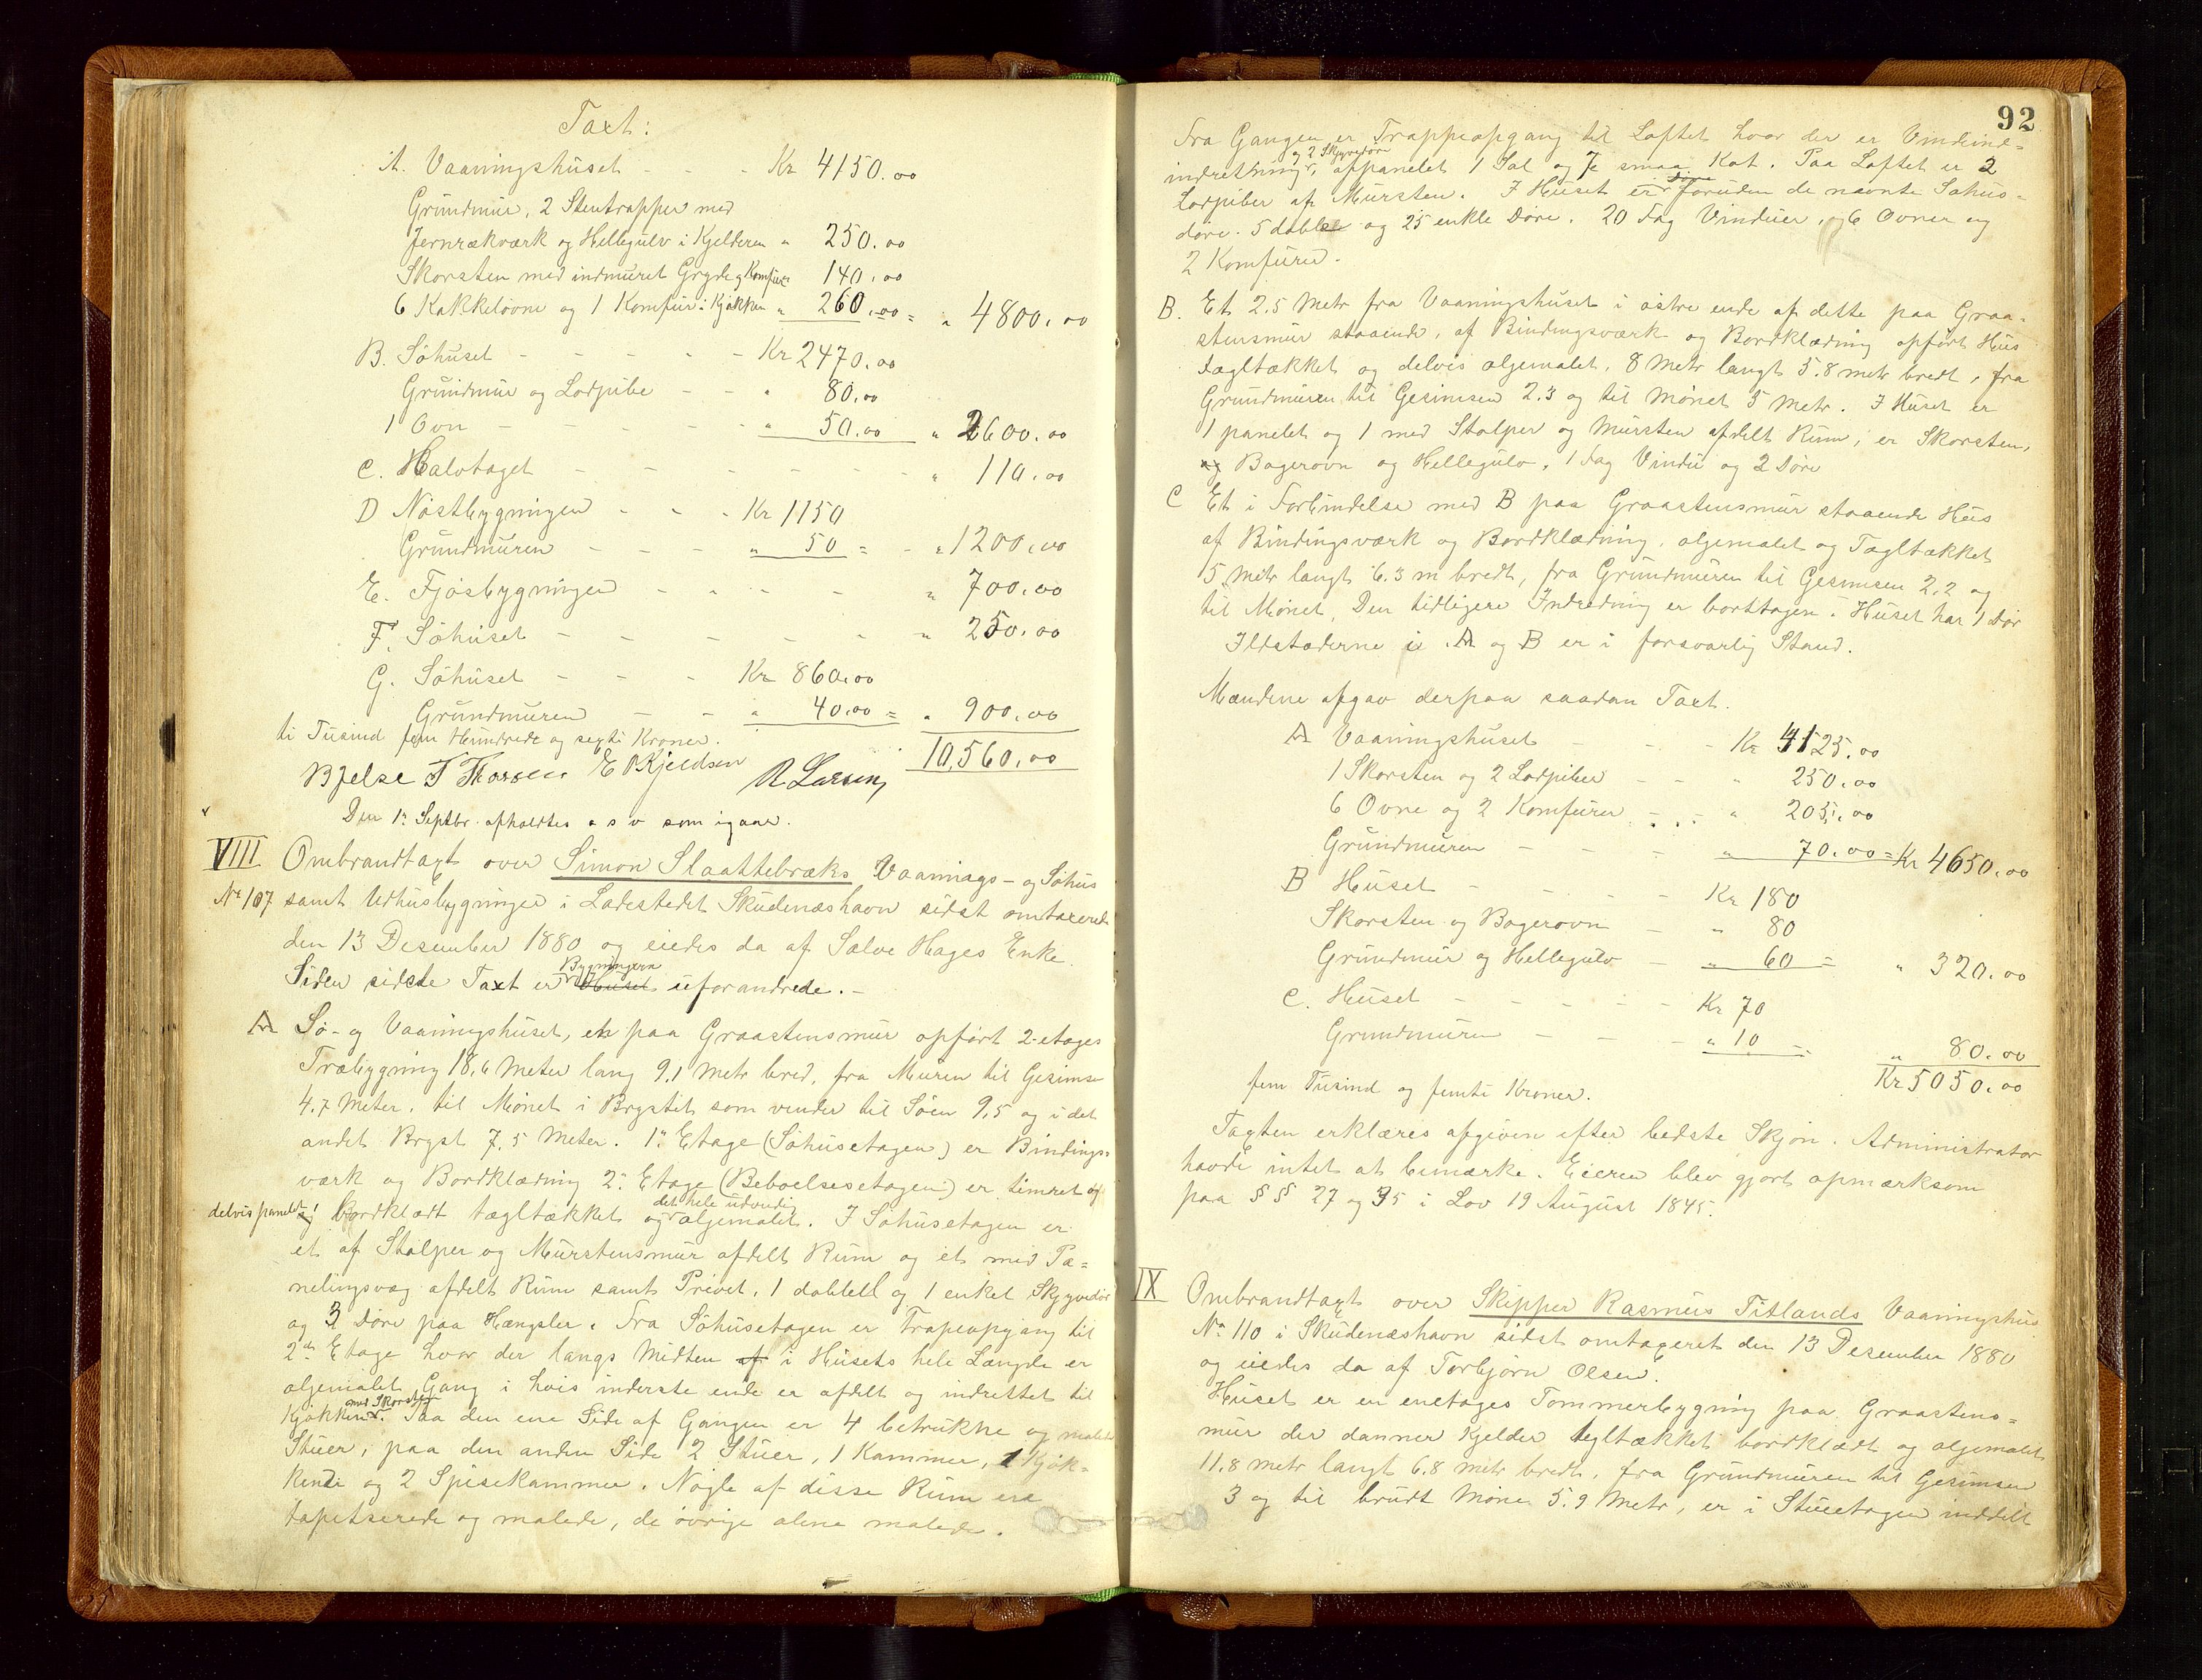 Taxt:
A. Vaaningshuset - - - Kr 4150.00
Grundmur, 2 Stentrapper med
Jernrækværk og Hellegulv i Kjelderen " 250.00
Skorsten med indmuret Gryde og Komfur " 140.00
6 Kakkelovne og 1 Komfur i Kjøkken " 260.00 = " 4800.00
B. Søhuset - - - - - Kr 2470.00
Grundmur og Lodpibe - - " 80.00
1 Ovn - - - - - " 50.00 " 2600.00
C. Halvtaget - - - - - - " 110.00
D Nøstbygningen - - - Kr 1150
Grundmuren - - - " 50 = - " 1200.00
E. Fjøsbygningen - - - - " 700.00
F. Søhuset - - - - - - " 250.00
G. Søhuset - - - Kr 860.00
Grundmuren - - " 40.00 = " 900.00
ti Tusind fem Hundrede og segti Kroner. 10,560.00
BJelse T Thorsen E O Kjeldsen R Larsen,
Den 1n Septbr. afholdtes o s v som igaar.
VIII Ombrandtaxt over Simon Slaattebræks Vaanings- og Søhus
No 107 samt Udhusbygninger i Ladestedet Skudenæshavn sidst omtaxerede
den 13 Desember 1880 og eiedes da af Salve Hages Enke.
Siden sidste Taxt er Huset Bygningerne uforandrede. -
A Sø- og Vaaningshuset, en paa Graastensmur opført 2-etages
Træbygning 18,6 Meter lang 9,1 Metr bred, fra Muren til Gesimse
4.7 Meter, til Mønet i Brystet som vender til Søen 9,5 og i det
andet Bryst 7,5 Meter. 1n Etage (Søhusetagen) er Bindings-
værk og Bordklædning 2n Etage (Beboelsesetagen) er timret og
delvis panelet og bordklædt tægltækket og det hele udvendig oljemalet. I Søhusetagen er
et af Stolper og Murstensmur afdelt Rum og et med Pa-
nelingsvæg afdelt Rum samt Privet, 1 dobbelt og 1 enkel Skyvedør
og 3 Døre paa Hængsler. Fra Søhusetagen er Trapeopgang til
2den Etage hvor der langs Midten af i Husets hele Længde er
oljemalet Gang i hvis inderste ende er afdelt og indrettet til
Kjøkken med Skorsten. Paa den ene Side af Gangen er 4 betrukne og malede
Stuer, paa den anden Side 2 Stuer, 1 Kammer, 1 Kjøk-
ken og 2 Spisekammer. Nogle af disse Rum ere
tapetserede og malede, de øvrige alene malede.
92
Fra Gangen er Trappeopgang til Loftet hvor der er Vindeind-
indretning og 2 Skyvedøre, afpanelet 1 Sal og 7 smaa Kot. Paa Loftet er 2
Lodpiber af Mursten. I Huset er foruden de nævnte Søhus-
døre 5 doble og 25 enkle Døre. 20 Fag Vinduer, og 6 Ovner og
2 Komfurer.
B. Et 2.5 Metr fra Vaaningshuset i østre ende af dette paa Graa-
stensmur staaende, af Bindingsværk og Bordklædning opført Hus
tægltækket og delvis oljemalet, 8 Metr langt 5.8 metr bredt, fra
Grundmuren til Gesimsen 2.3 og til Mønet 5 Metr. I Huset er
1 panelet og 1 med Stolper og Mursten afdelt Rum, er Skorsten,
og Bagerovn og Hellegulv, 1 Fag Vindu og 2 Døre
C Et i Forbindelse med B paa Graastensmur staaende Hus
af Bindingsværk og Bordklædning, oljemalet og Tægltækket
5 Metr langt 6.3 m bredt, fra Grundmuren til Gesimsen 2.2 og
til Mønet. Den tidligere Indredning er borttagen. Huset har 1 Dør
Ildstæderne i A og B er i forsvarlig Stand.
Mændene afgav derpaa saadan Taxt.
A Vaaningshuset - - - Kr 4125.00
1 Skorsten og 2 Lodpiber - - " 250.00
6 Ovne og 2 Komfurer - - - " 205.00
Grundmuren - - - " 70.00 = Kr 4650.00
B Huset - - - - - Kr 180
Skorsten og Bagerovn - " 80
Grundmur og Hellegulv - " 60 = " 320.00
C. Huset - - - - - Kr 70
Grundmuren - - - " 10 = " 80.00
fem Tusind og femti Kroner. Kr 5050.00
Taxten erklæres afgiven efter bedste Skjøn. Administrator
havde intet at bemærke. Eieren blev gjort opmærksom
paa § § 27 og 35 i Lov 19 August 1845.
IX Ombrandtaxt over Skipper Rasmus Titlands Vaaningshus
No 110 i Skudenæshavn sidst omtaxeret den 13 Desember 1880
og eiedes da af Torbjørn Olsen.
Huset er en enetages Tømmerbygning paa Graastens-
mur der danner Kjelder tegltækket bordklædt og oljemalet
11.8 metr langt 6.8 metr bredt, fra Grundmuren til Gesimsen
3 og til brudt Møne 5.9 Metr, er i Stueetagen inddelt